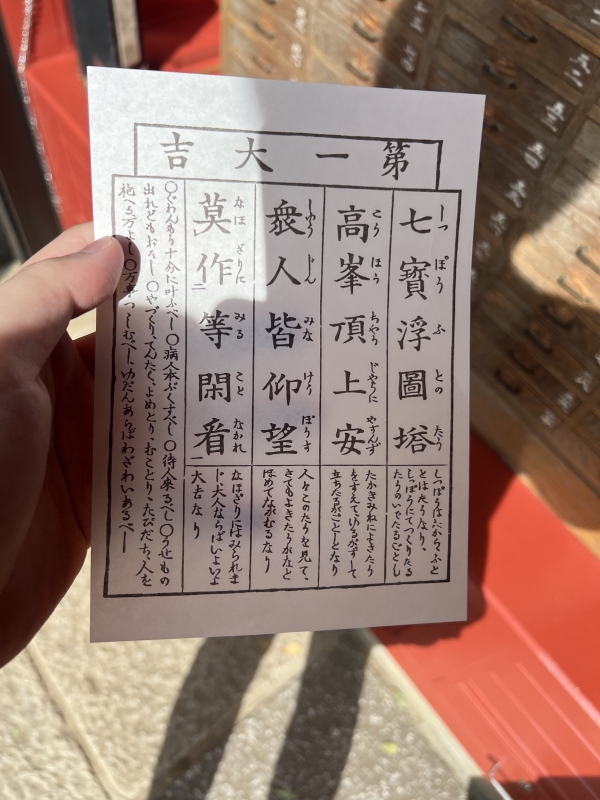 第一大吉
七寳浮圖塔
しつ ぽう ふ との たう
しつぽうはたから、ふと
とはたうなり、
しつぽうにてつくりたる
たうのいでたるごとし
高峯頂上安
こう ほう ちやう じやうに やすんず
たかきみねによきたう
をすえて、ゆるがずして
立ちたるがごとしとなり
衆人皆仰望
しゆう じん みな げう ぼうす
人々このたうを見て、
さてもよきたうかなと
ほめてながむるなり
莫作等閑看
なほ ざりに みる こと なかれ
なほざりにはみられま
じ、大人ならばいよいよ
大吉なり
〇ぐわんもう十分に叶ふべし〇病人本ぷくすべし〇待人来るべし〇うせもの
出れどもおそし〇やづくり、てんたく、よめとり、むことり、たびだち、人を
抱へる万よし〇万事つつしむべし、ゆだんあらばわざわいあるべし